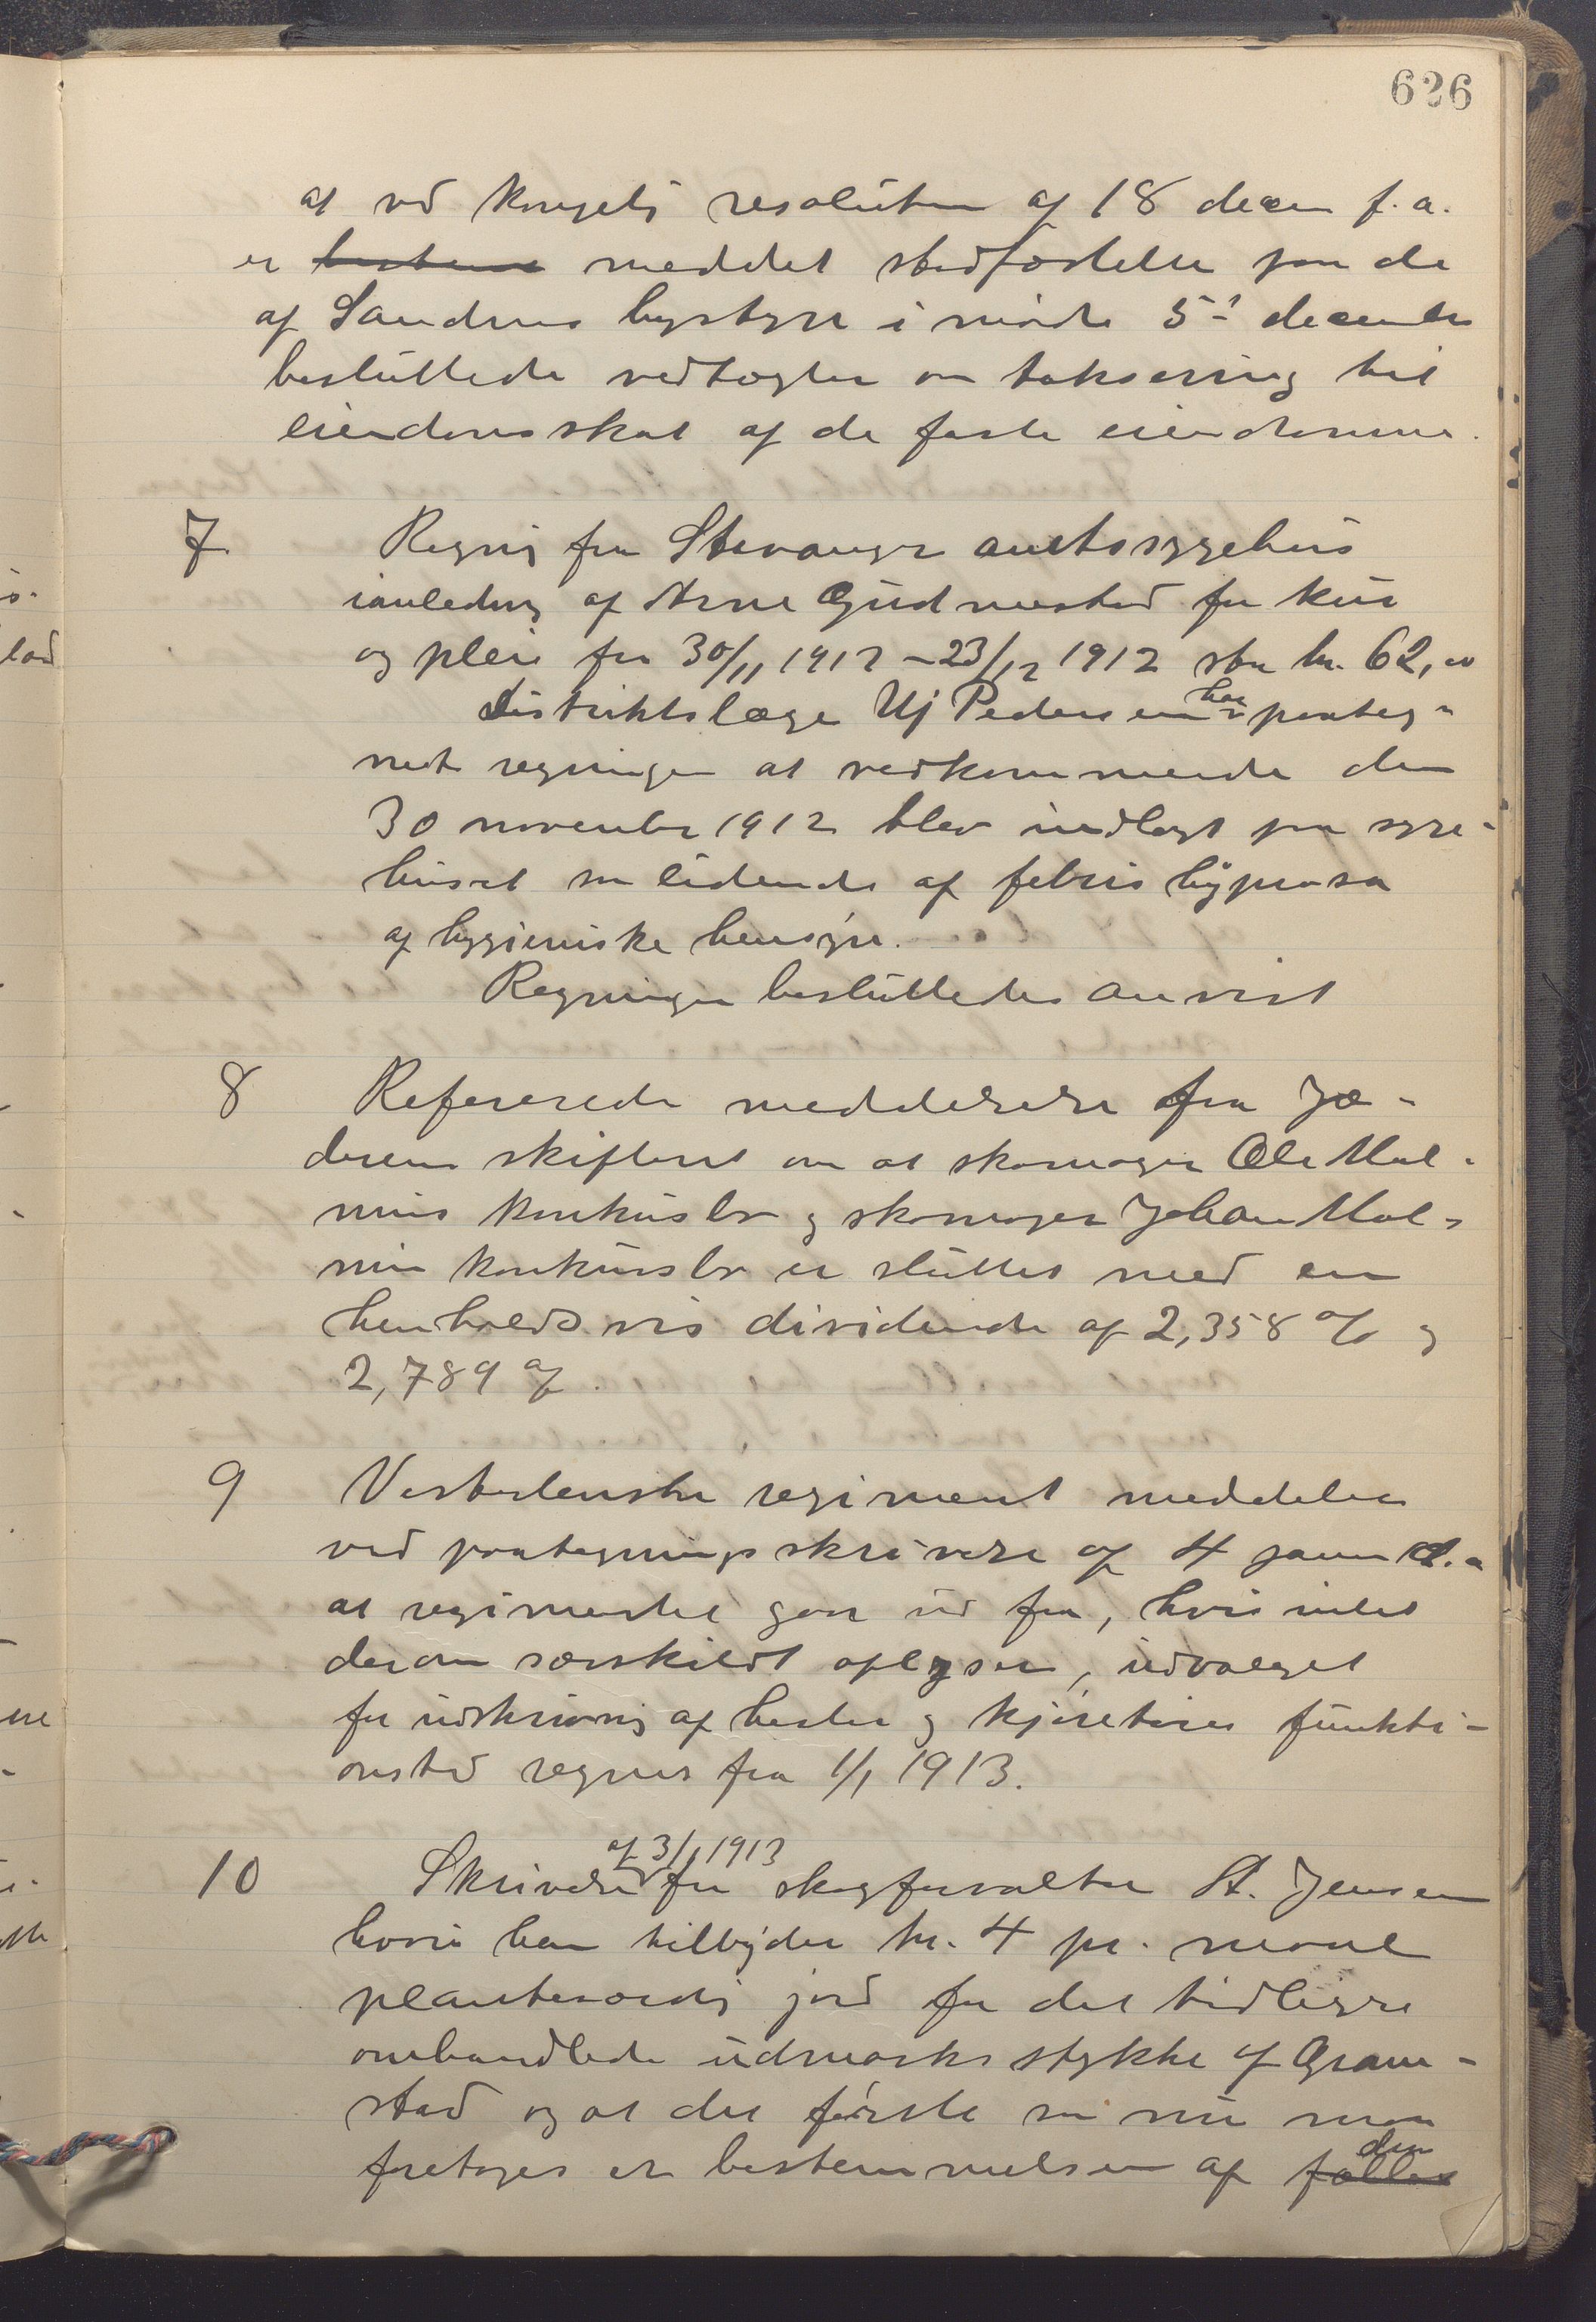 626
at ved kongelig resolution af 18 decem f.a.
er bestemt meddelt stadfæstelse paa de
af Sandnes bystyre i møde 5te december
besluttede vedtægter om taksering til
eiendomsskat af de faste eiendomme.
7 Regning fra Stavanger amtssygehus
ianledning af Arne Gudmestad for kur
og pleie fra 30/11 1912 - 23/12 1912 stor kr. 62,00
Distriktslæge Uj Pedersen har paateg-
net regningen at vedkommende den
30 november 1912 blev indlagt paa syge-
huset som lidende af febris
af hygieniske hensyn.
Regningen besluttedes anvist
8 Refererede meddelelse fra Jæ-
deren skifteret om at skomager Ole Mal-
mins konkursbo og skomager Johan Mal-
min konkursbo er sluttet med en
henholdsvis dividende af 2,358 % og
2,789 %.
9 Vesterlenske regiment meddeler
ved paategningsskrivelse af 4 januar d.a
at regimentet gaar ud fra, hvis intet
derom særskildt oplyses, udvalget
for udskrivning af heste og kjøretøier funkti-
onstid regnes fra 1/1 1913.
10 Skrivelse af 3/1 1913 fra skogforvalter St. Jensen
hvori han tilbyder kr. 4 pr. maal
planteværdig jord for det tidligere
omhandlede udmarksstykke af Gram-
stad og at det første som nu maa
foretages er bestemmelsen af fælles den